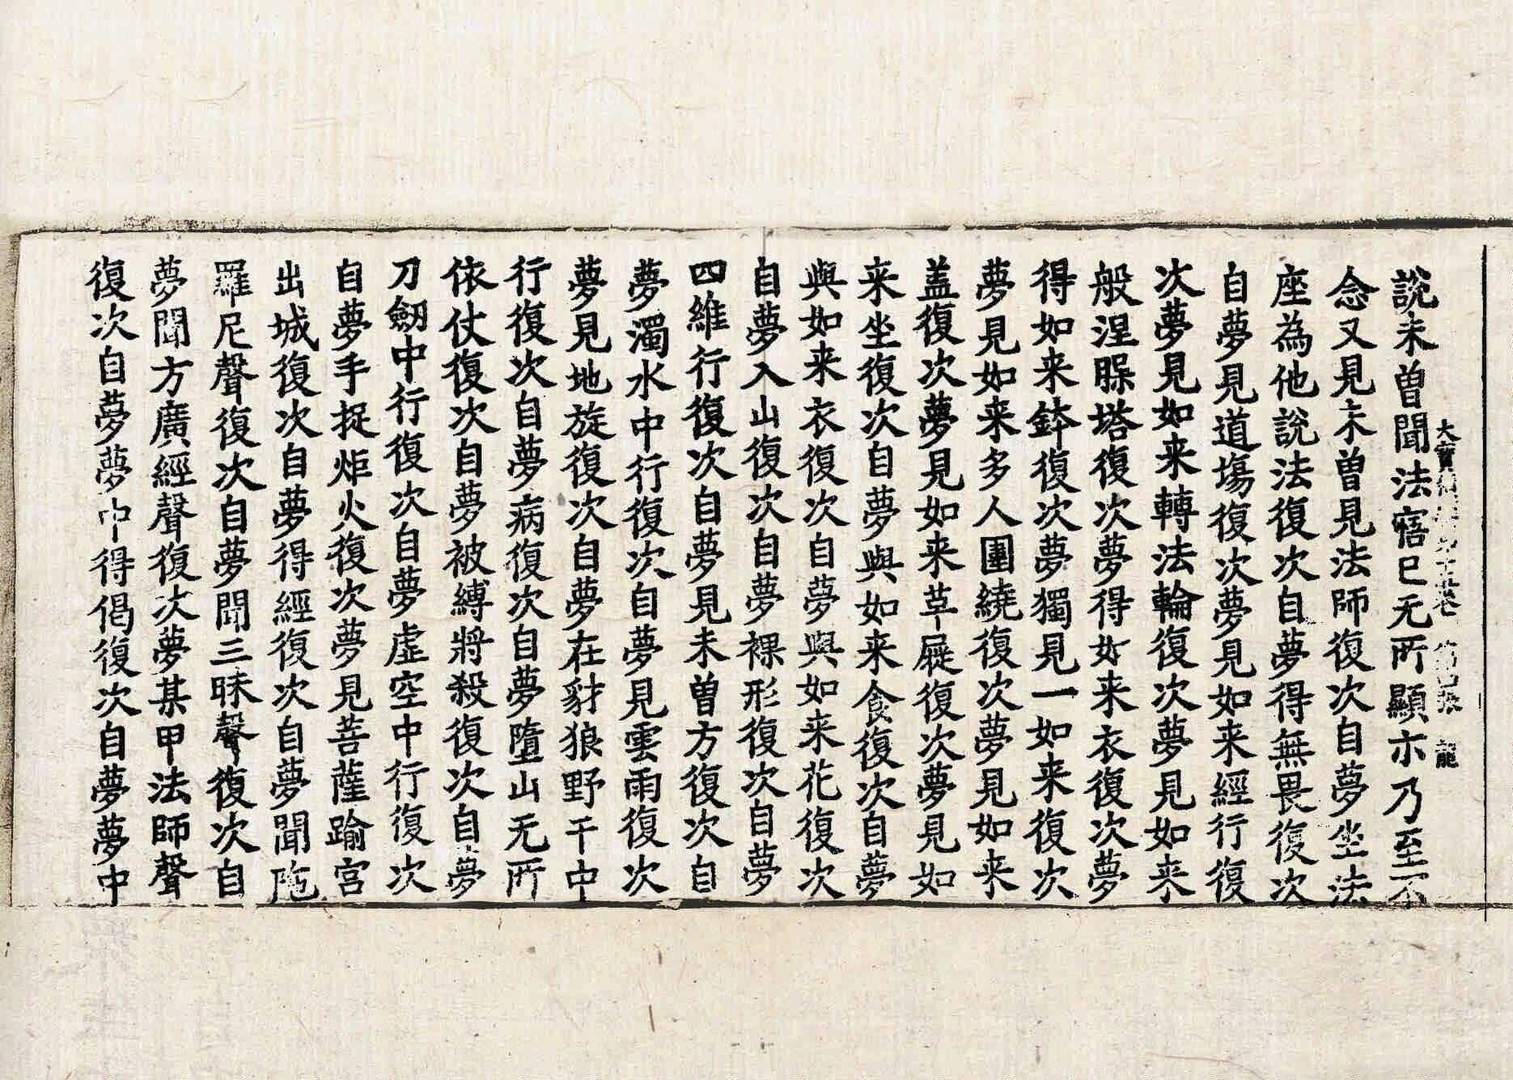 說未曾聞法寤已无所顯亦乃至不
大寶積經第十五卷 第四張 龍
念又見未曾見法師復次自夢坐法
座為他說法復次自夢得無畏復次
自夢見道場復次夢見如来經行復
次夢見如来轉法輪復次夢見如来
般涅槃塔復次夢得如来衣復次夢
得如来鉢復次夢獨見一如来復次
夢見如来多人圍繞復次夢見如来
盖復次夢見如来草屣復次夢見如
来坐復次自夢與如来食復次自夢
與如来衣復次自夢與如来花復次
自夢入山復次自夢裸形復次自夢
四維行復次自夢見未曾方復次自
夢濁水中行復次自夢見雲雨復次
夢見地旋復次自夢在豺狼野干中
行復次自夢病復次自夢墮山无所
依仗復次自夢被縛將殺復次自夢
刀劒中行復次自夢虛空中行復次
自夢手捉炬火復次夢見菩薩踰宮
出城復次自夢得經復次自夢聞陁
羅尼聲復次自夢聞三昧聲復次自
夢聞方廣經聲復次夢某甲法師聲
復次自夢夢中得偈復次自夢夢中